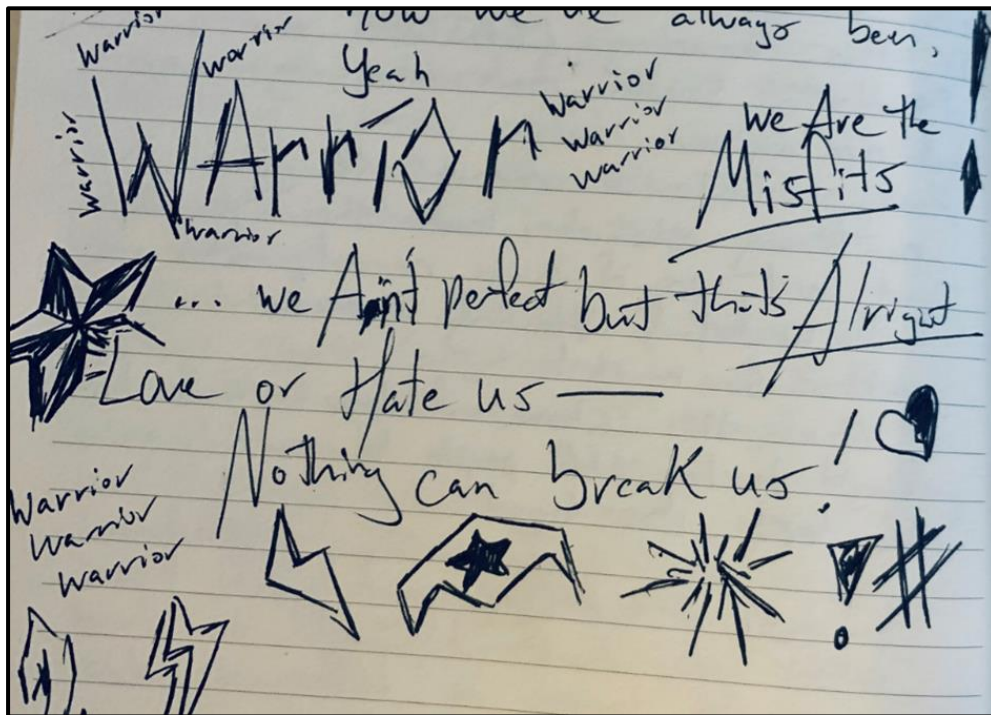 How we've always been,
Warrior
Warrior
Yeah
Warrior
Warrior
Warrior
Warrior
Warrior
Warrior
Warrior
We Are the
Misfits
... we Ain't perfect but that's Alright
Love or Hate us —
Nothing can break us!
Warrior
Warrior
Warrior
! #